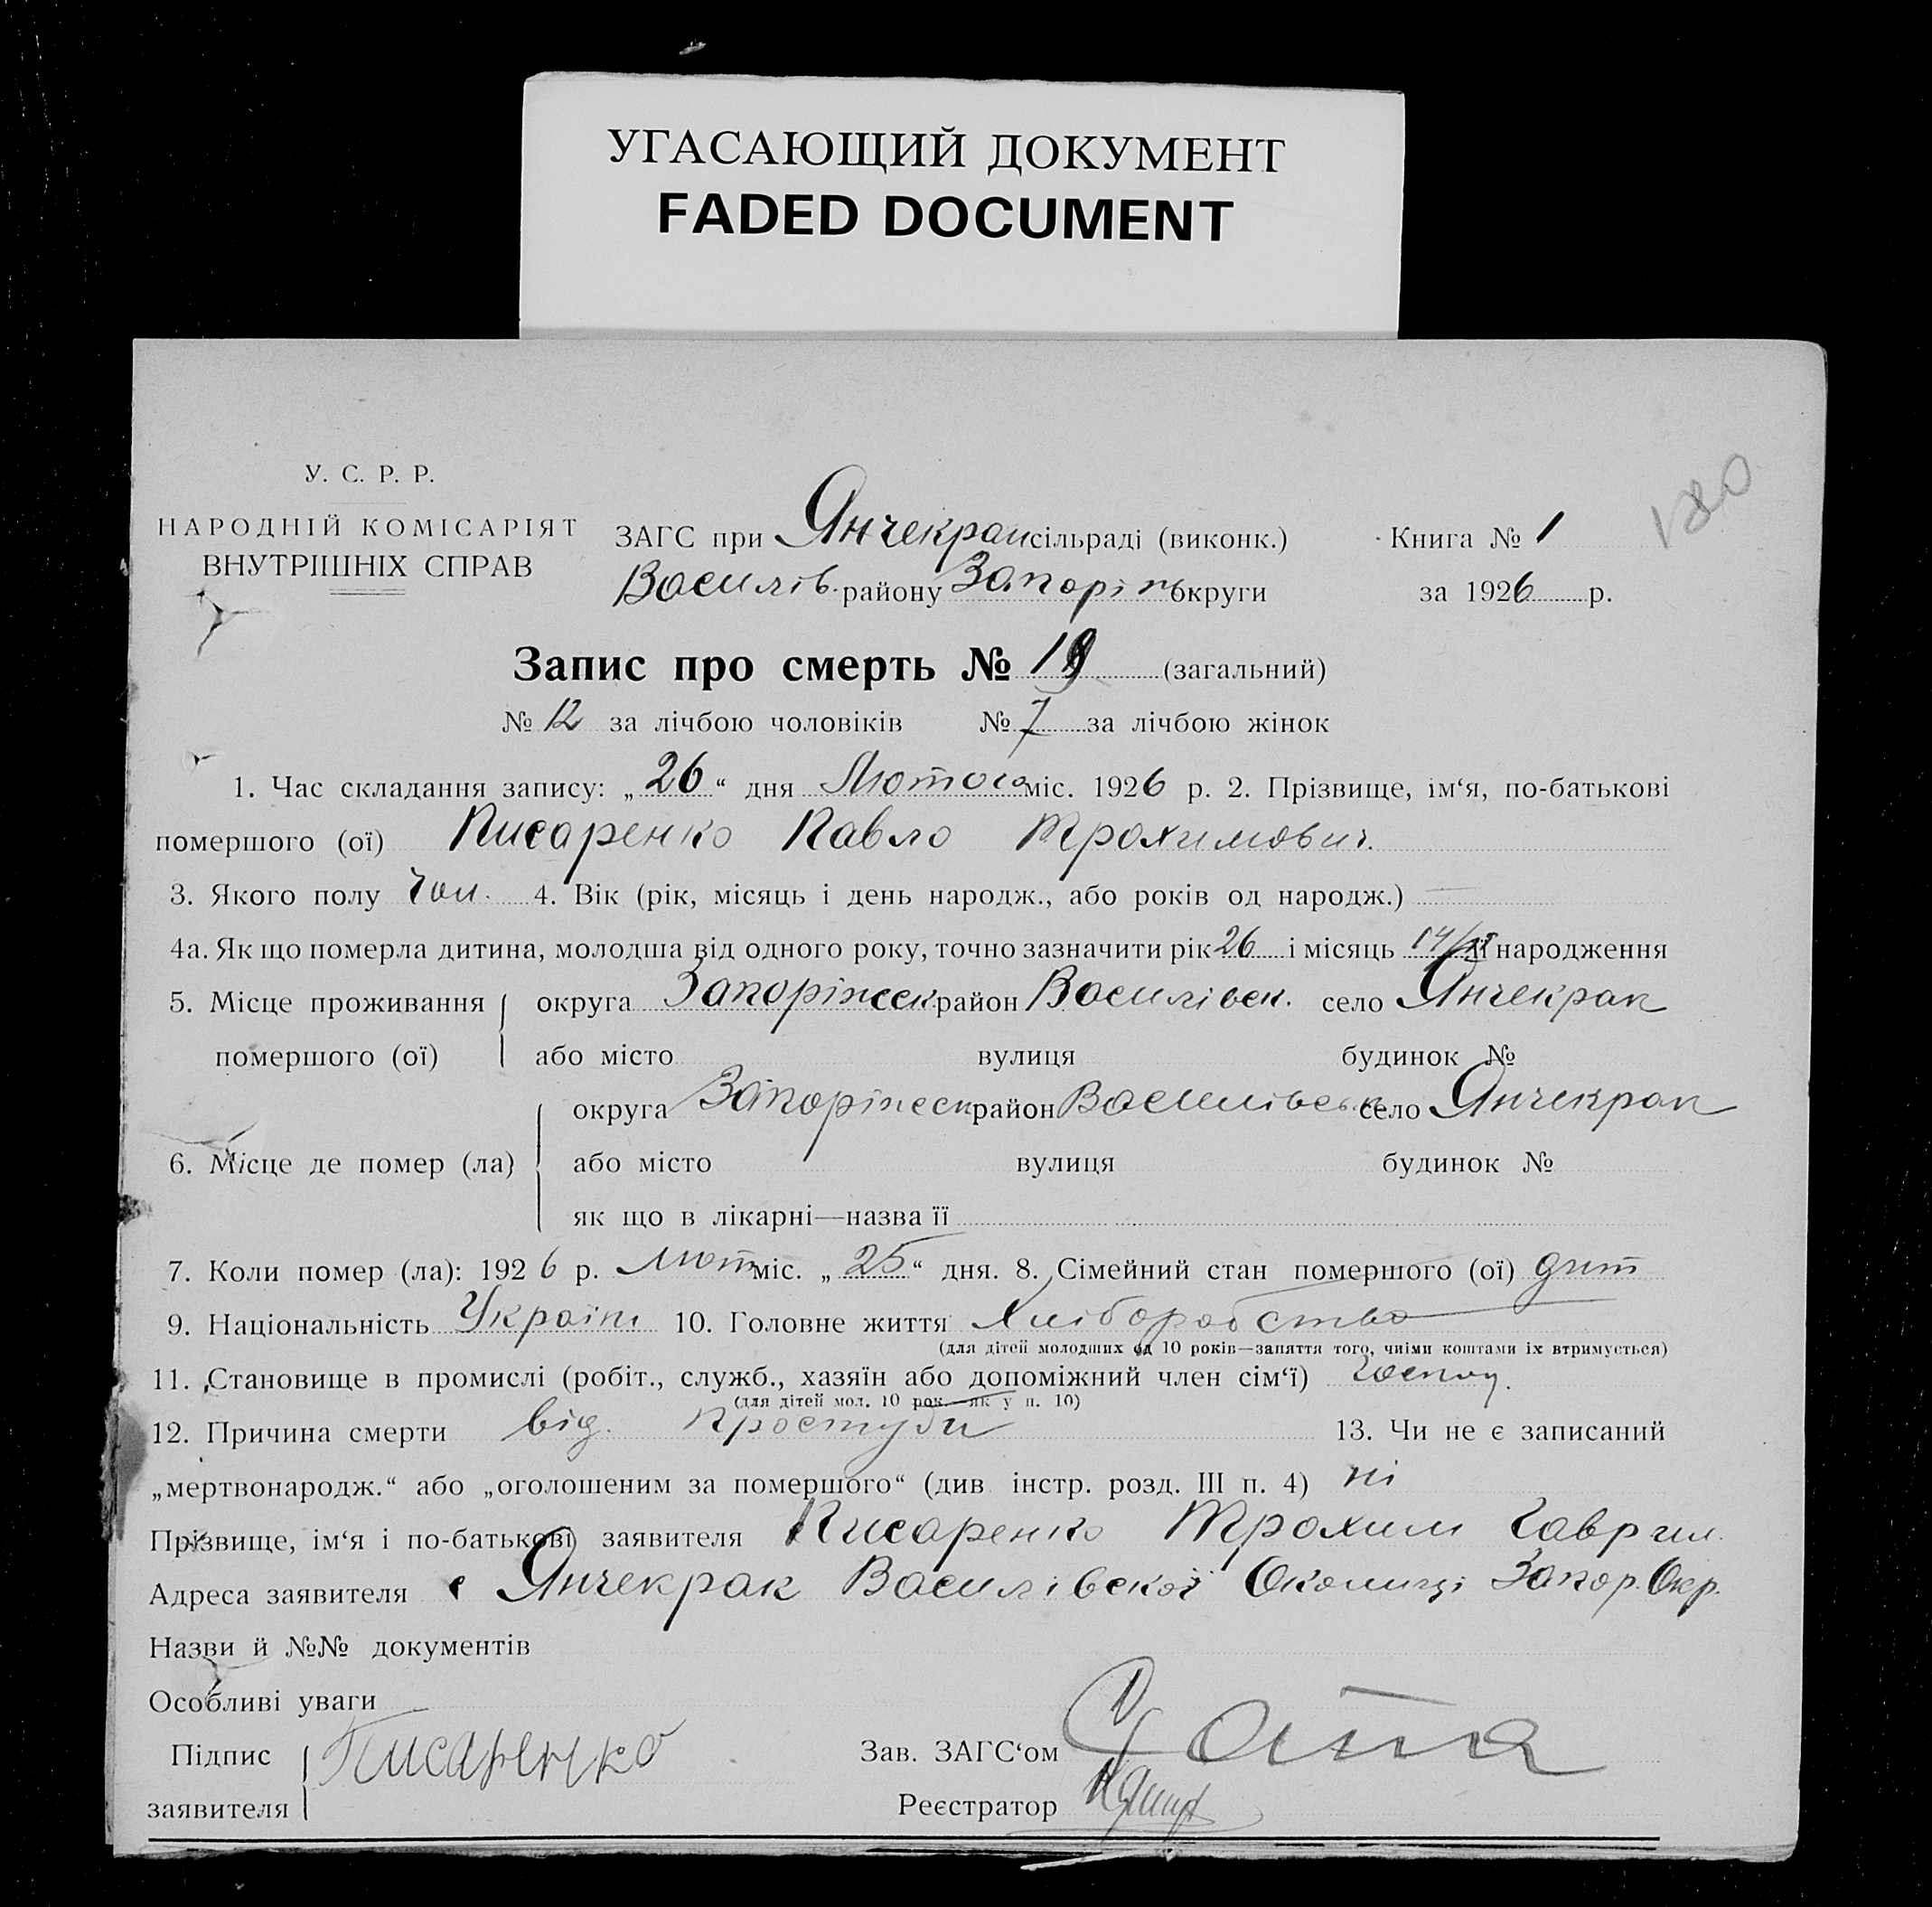 УГАСАЮЩИЙ ДОКУМЕНТ
FADED DOCUMENT
180
У. С. Р. Р.
НАРОДНІЙ КОМІСАРІЯТ
ВНУТРІШНІХ СПРАВ
ЗАГС при Янчекрак сільраді (виконк.) Книга № 1
Василів. району Запоріж округи за 1926 р.
Запис про смерть № 19 (загальний)
№ 12 за лічбою чоловіків № 7 за лічбою жінок
1. Час складання запису: „26“ дня Лютого міс. 1926 р. 2. Прізвище, ім‘я, по-батькові
помершого (ої) Писаренко Павло Трохимович.
3. Якого полу Чол. 4. Вік (рік, місяць і день народж., або років од народж.)
4а. Як що померла дитина, молодша від одного року, точно зазначити рік 26 і місяць 14/ її народження
5. Місце проживання округа Запоріжськ район Василівськ. село Янчекрак
помершого (ої) або місто вулиця будинок №
округа Запоріжськ район Василівськ село Янчекрак
6. Місце де помер (ла) або місто вулиця будинок №
як що в лікарні—назва її
7. Коли помер (ла): 1926 р. Лют міс. „25“ дня. 8. Сімейний стан помершого (ої) дит
9. Національність Україн 10. Головне життя Хліборобство
(для дітей молодших од 10 років—заняття того, чиїми коштами їх втримується)
11. Становище в промислі (робіт., служб., хазяїн або допоміжний член сім‘ї) Господ.
(для дітей мол. 10 рок.—як у п. 10)
12. Причина смерти від. простуди 13. Чи не є записаний
„мертвонародж.“ або „оголошеним за помершого“ (див інстр. розд. III п. 4) ні
Прізвище, ім‘я і по-батькові заявителя Писаренко Трохим Гаврил.
Адреса заявителя с Янчекрак Василівскої Околиці Запор. Окр.
Назви й №№ документів
Особливі уваги
Підпис Писаренко Зав. ЗАГС‘ом
заявителя Реєстратор